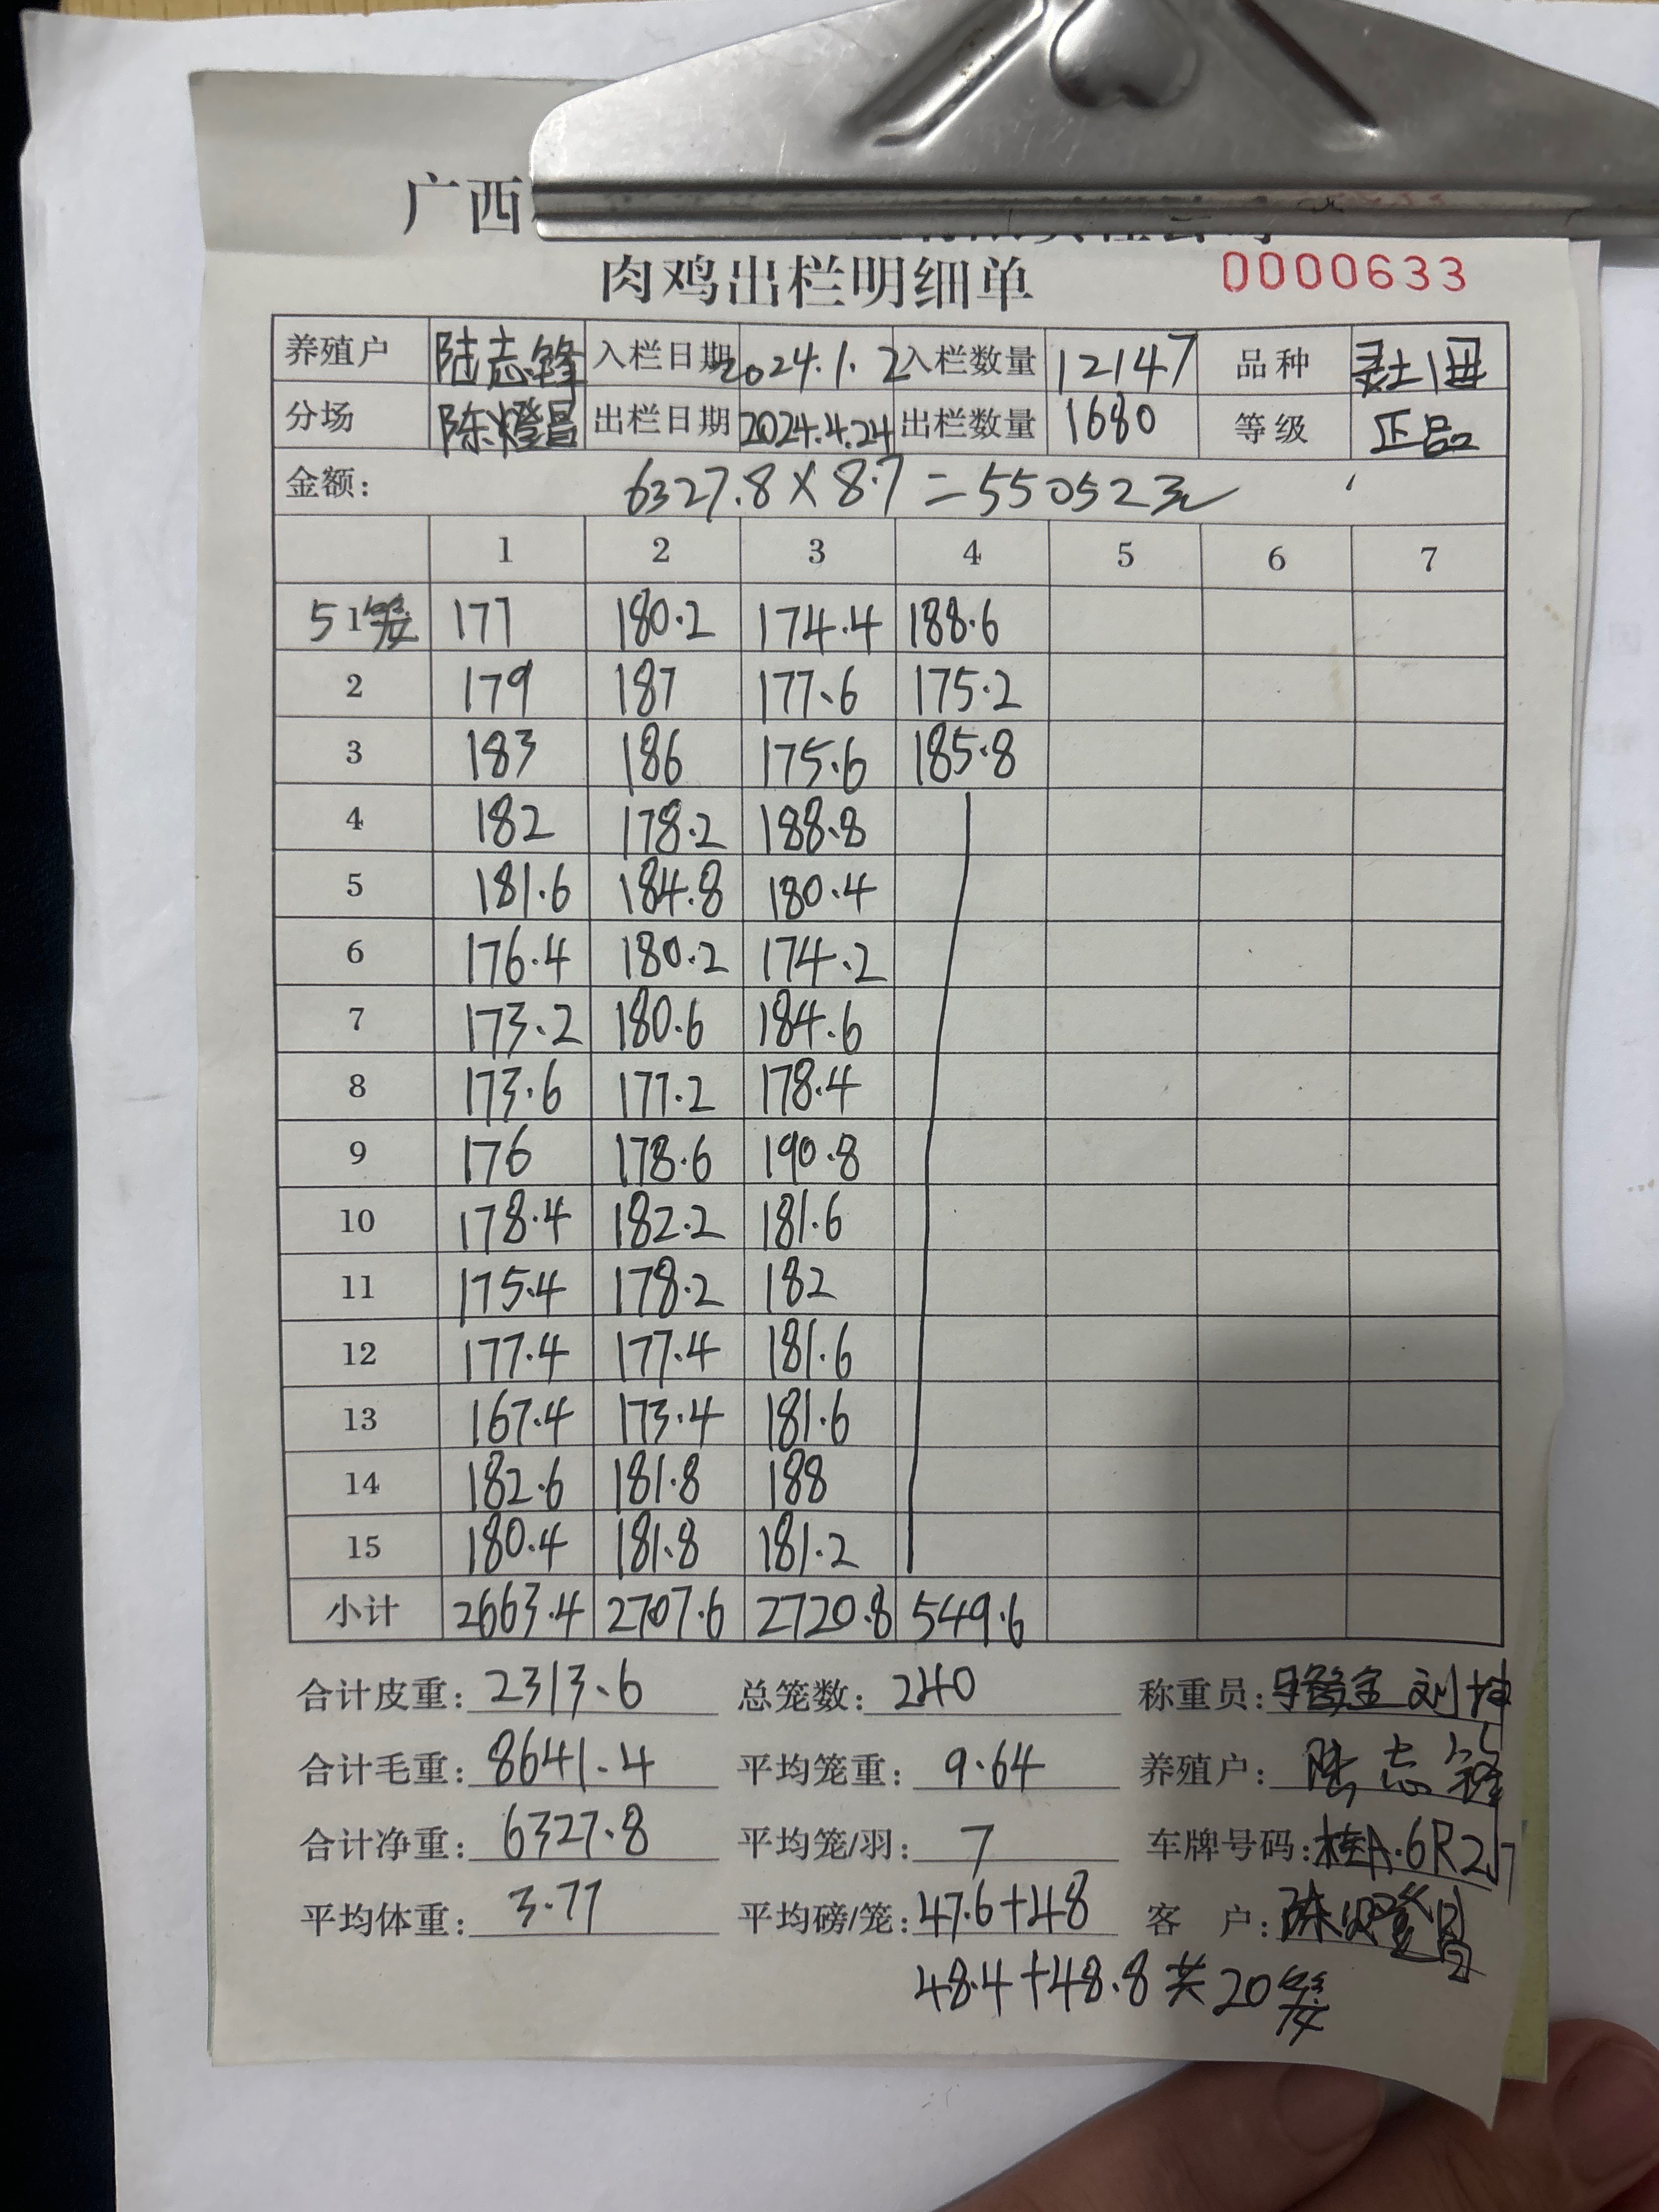 广西
肉鸡出栏明细单 0000633
养殖户 陆志锋 入栏日期 2024.1.2 入栏数量 12147 品种
分场 陈燈昌 出栏日期 2024.4.24 出栏数量 1680 等级 正品
金额: 6327.8×8.7=55052元
1 2 3 4 5 6 7
5 1笼 177 180.2 174.4 188.6
2 179 187 177.6 175.2
3 183 186 175.6 185.8
4 182 178.2 188.8
5 181.6 184.8 180.4
6 176.4 180.2 174.2
7 173.2 180.6 184.6
8 173.6 177.2 178.4
9 176 178.6 190.8
10 178.4 182.2 181.6
11 175.4 178.2 182
12 177.4 177.4 181.6
13 167.4 173.4 181.6
14 182.6 181.8 188
15 180.4 181.8 181.2
小计 2663.4 2707.6 2720.8 549.6
合计皮重: 2313.6 总笼数: 240 称重员: 刘坤
合计毛重: 8641.4 平均笼重: 9.64 养殖户: 陆志锋
合计净重: 6327.8 平均笼/羽: 7 车牌号码: 桂A.6R2
平均体重: 3.77 平均磅/笼: 47.6+48 客户: 陈燈昌
48.4+48.8共20笼